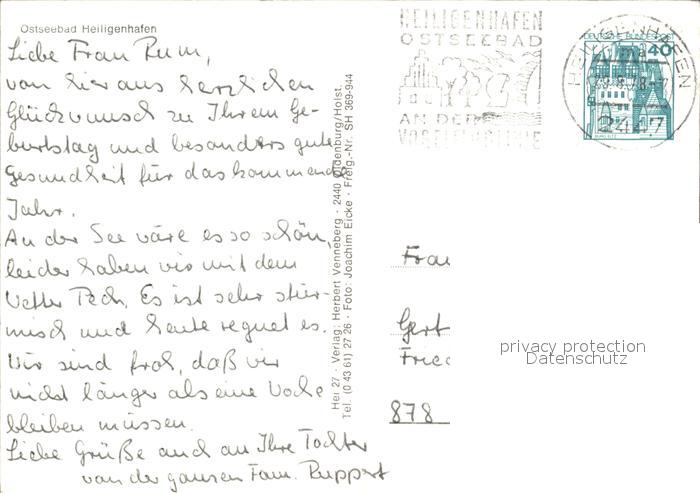 Ostseebad Heiligenhafen
Liebe Frau Rum,
von hier aus herzlichen
Glückwunsch zu Ihrem Ge-
burtstag und besonders gute
Gesundheit für das kommende
Jahr.
An der See wäre es so schön,
leider haben wir mit dem
Wetter Pech. Es ist sehr stür-
misch und heute regnet es.
Wir sind froh, daß wir
nicht länger als eine Woche
bleiben müssen.
Liebe Grüße auch an Ihre Tochter
von der ganzen Fam. Ruppert
Hei 27 · Verlag: Herbert Venneberg · 2440 Oldenburg/Holst.
Tel. (0 43 61) 27 26 · Foto: Joachim Eicke · Freig.-Nr. SH 369-944
HEILIGENHAFEN
OSTSEEBAD
AN DER
HEILIGENHAFEN
DEUTSCHE BUNDESPOST
40
2447
Frau
Gert
Fried
878
privacy protection
Datenschutz